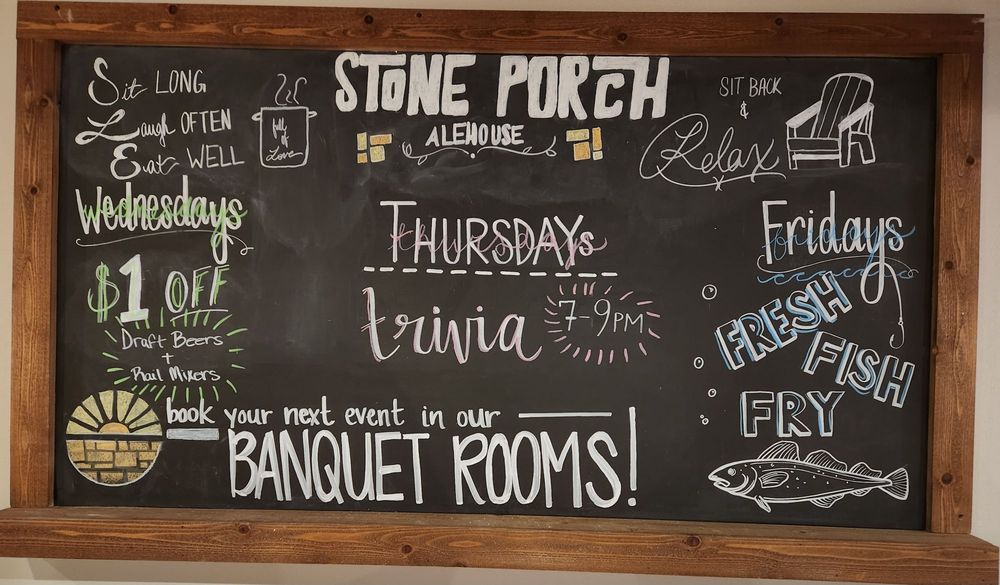 Sit LONG
Laugh OFTEN
Eat WELL
full
of
Love
STONE PORCH
ALEHOUSE
SIT BACK
&
Relax
Wednesdays
$1 OFF
Draft Beers
+
Rail Mixers
THURSDAYs
trivia
7-9PM
Fridays
FRESH
FISH
FRY
book your next event in our
BANQUET ROOMS!